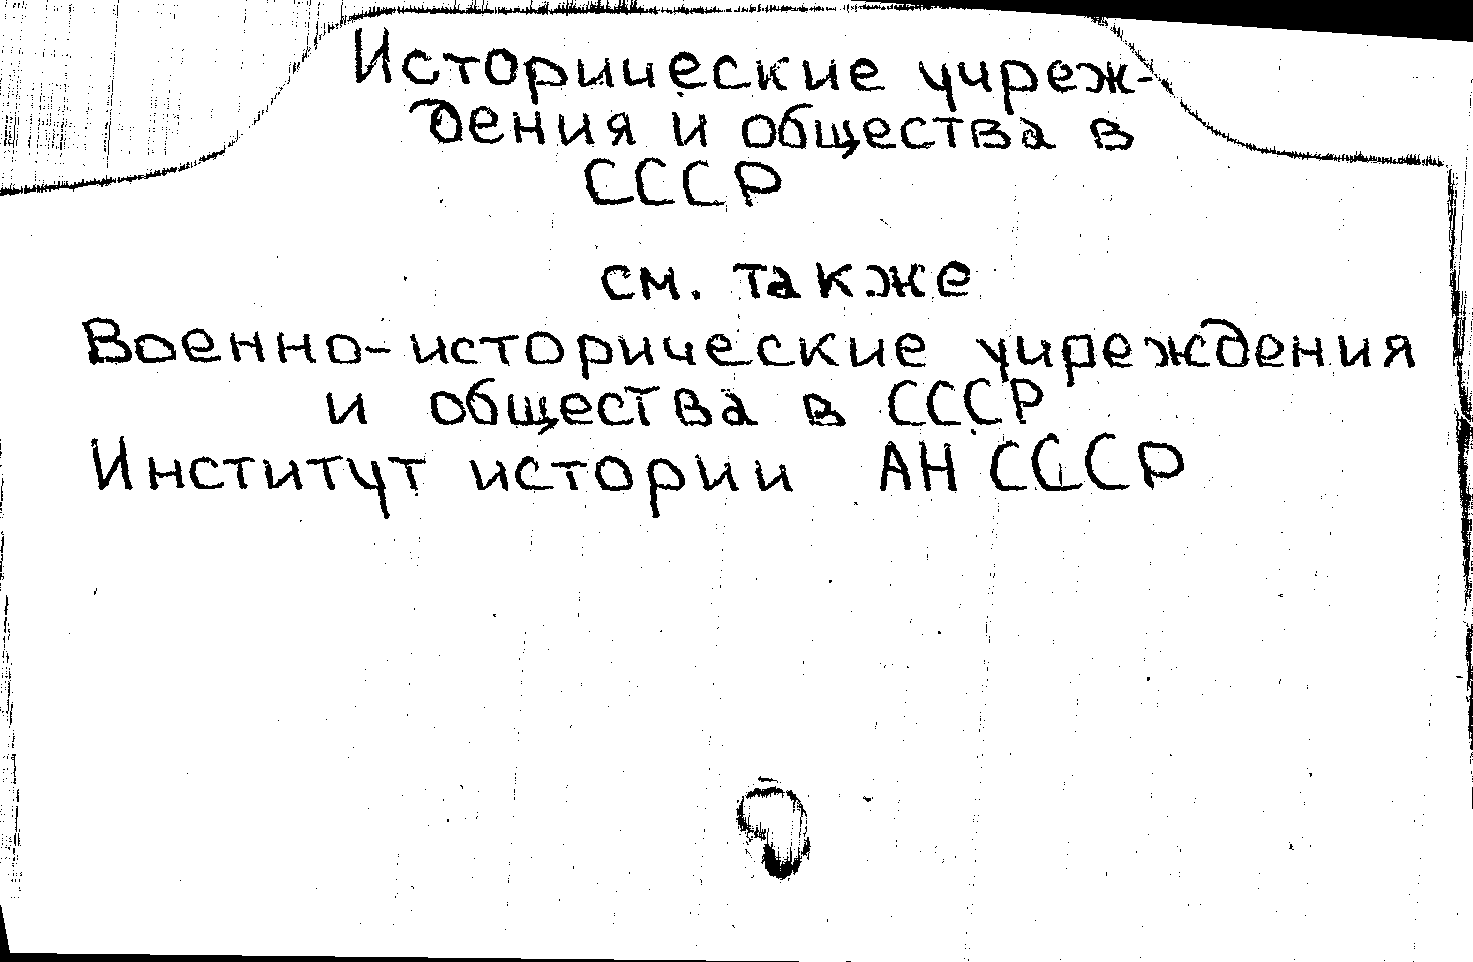 Исторические учреж-
дения и общества в
СССР
см. также
Военно-исторические учиреждения
и общества в СССР
Институт истории АН СССР